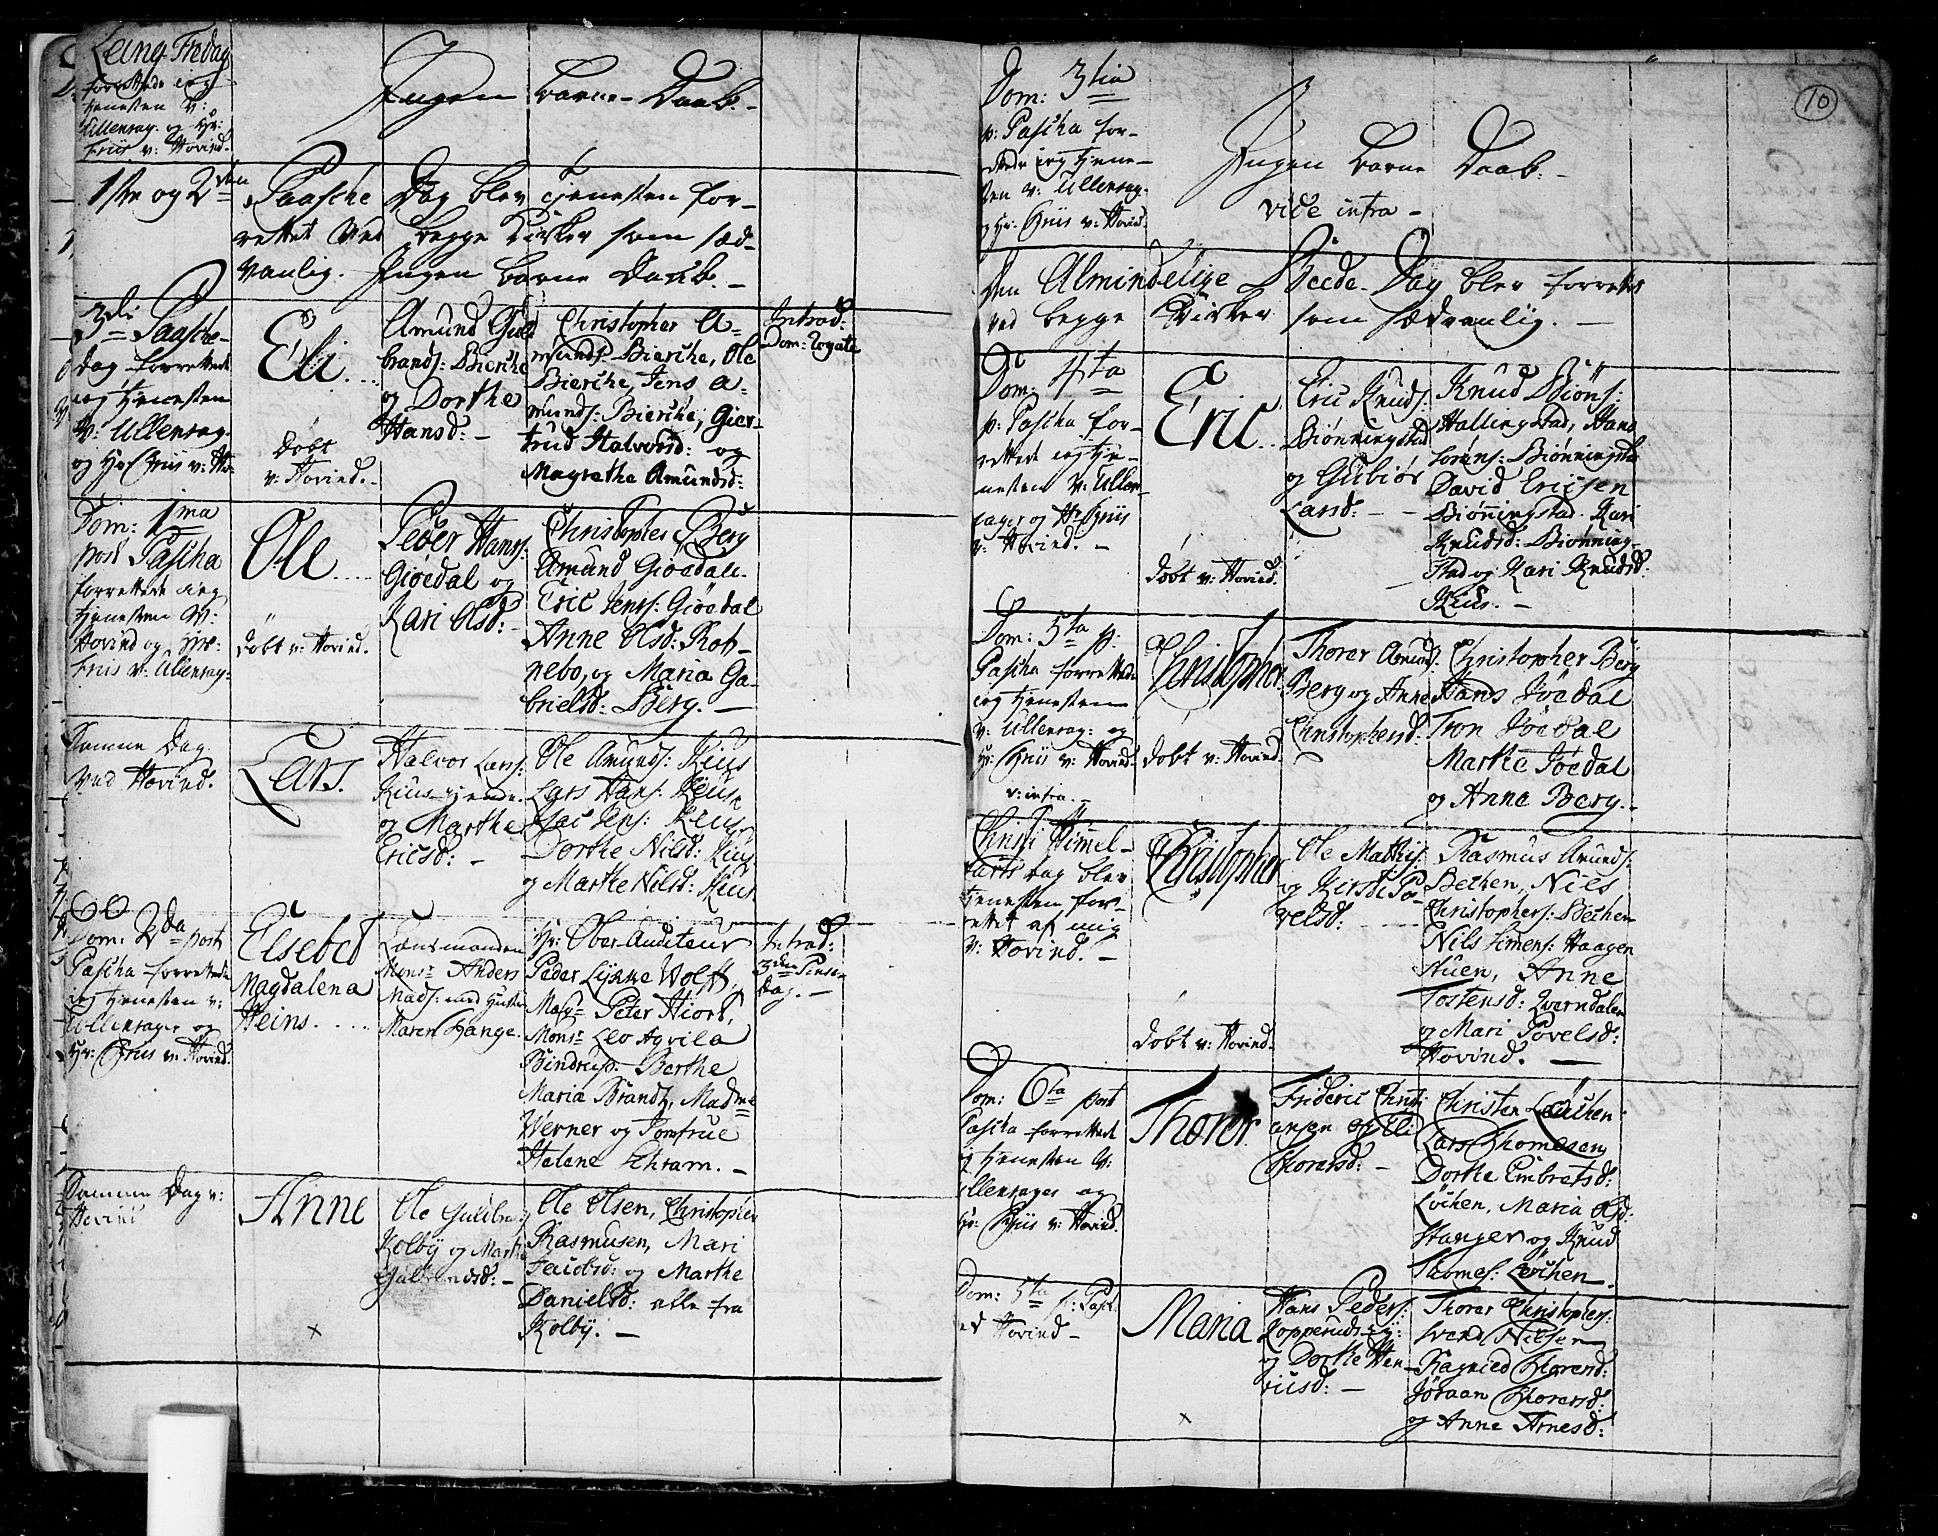 Lang Fredag
forrettede ieg
tienesten v:
Ullensag. og Hr:
Friis v: Hovind.
Ingen Barne-Daab.
1ste og 2den Paasche Dag blev tienesten for-
rettet ved begge Kirker som sæd-
vanlig. Ingen Barne Daab.
3die Paasche-
dag forrettede
ieg tienesten
v: Ullensag.
og Hr Friis v: Ho-
Eli
Døbt
v: Hovind.
Amund Guld
brands: Bierche
og Dorthe
Hansd:
Christopher A-
munds: Bierche, Ole
Bierche, Jens A-
munds: Bierche, Gier-
trud Halvorsd: og
Magrethe Amundsd:
Introd:
Dom: Rogate
Dom: 1ma
post Pascha
forrettede ieg
tienesten v:
Hovind og Hr:
Friis v: Ullensag.
Ole
Døbt v: Hovind.
Peder Hans:
Giøedal og
Kari Olsd:
Christopher Berg
Amund Giøedal.
Eric Jens: Giøedal
Anne Olsd: Rot-
nebo, og Maria Ga-
brielsd: Berg.
Samme Dag
ved Hovind.
Lars.
Halvor Lars:
og Marthe
Ericsd:
Ole Amunds: Kius
Lars Hans: Kius
Isac Jens: Kius
Dorthe Nilsd: Kius
og Marthe Nilsd: Kius
Dom: 2da post
Pascha forrettede
ieg tienesten v:
Ullensager og
Hr: Friis v: Hovind.
Elsebet
Magdalena
Heins.
Lensmanden
Mons: Anders
Mads: med Hustru
Maren Hange.
Hr: Ober-Auditeur
Peder Lynne Wolff,
Mons: Peter Hiort,
Mons: Leo Aqvila
Bindrup. Berthe
Maria Brandt, Madme
Werner og Jomfrue
Helene Schram.
Introd:
3die Pinse
Dag.
Samme Dag v:
Hovind
Anne
Ole Guldbr:
Kolbÿ og Marthe
Guldbrandsd:
Ole Olsen, Christopher
Rasmusen, Mari
Jacobsd: og Marthe
Danielsd: alle fra
Kolbÿ.
10
Dom: 3tia
p: Pascha for-
rettede ieg tiene-
sten v: Ullensag.
og Hr: Friis v: Hovind.
Ingen Barne Daab.
vide infra
Den Almindelige Beede-Dag blev forrettet
ved begge Kirker som sædvanlig.
Dom: 4ta
p: Pascha for-
rettede ieg tie-
nesten v: Ullen-
sager og Hr Friis
v: Hovind.
Eric
Døbt v: Hovind.
Eric Knuds:
Biønningstad
og Gubiør
Larsd:
Knud Biøns:
Hallingstad, Hans
Sørens: Biønningstad
David Ericsen
Biønningstad. Kari
Knudsd: Biønning-
stad og Kari Knudsd:
Kius.
Dom: 5ta p:
Pascha forrettede
ieg tienesten
v: Ullensag: og
Hr: Friis v: Hovind.
v: infra.
Christopher
Døbt v: Hovind
Thorer Amunds:
Berg og Anne
Christophersd:
Christopher Berg
Hans Jøedal
Tron Jøedal
Marthe Jøedal
og Anne Berg.
Christi Himmel-
farts dag blev
tienesten for-
rettet af mig
v: Hovind.
Christopher
Døbt v: Hovind.
Ole Mathis:
og Kirsti Po-
velsd:
Rasmus Amunds:
Bechen, Niels
Christophers: Bechen
Nils Simens: Haagen
stuen, Anne
Tostensd: Qverndalen
og Mari Povelsd:
Hovind.
Dom: 6ta post
Pascha forrettede
ieg tienesten v:
Ullensager og
Hr: Friis v: Hovind.
Thorer
Frideric Christi
ansen og Eli
Thorersd:
Christen Løchen
Lars Thomesen
Dorthe Embretsd:
Løchen, Maria Olsd:
Hanger og Knud
Thomes: Løchen.
Dom: 5ta p: Pasc.
ved Hovind
Maria
Hans Peders:
Kopperuds-ej:
og Dorthe Hen-
ricsd:
Thorer Christophers:
Svend Nilsen
Ragnild Thorersd:
Jøraan Thorersd:
og Anne Arnesd: